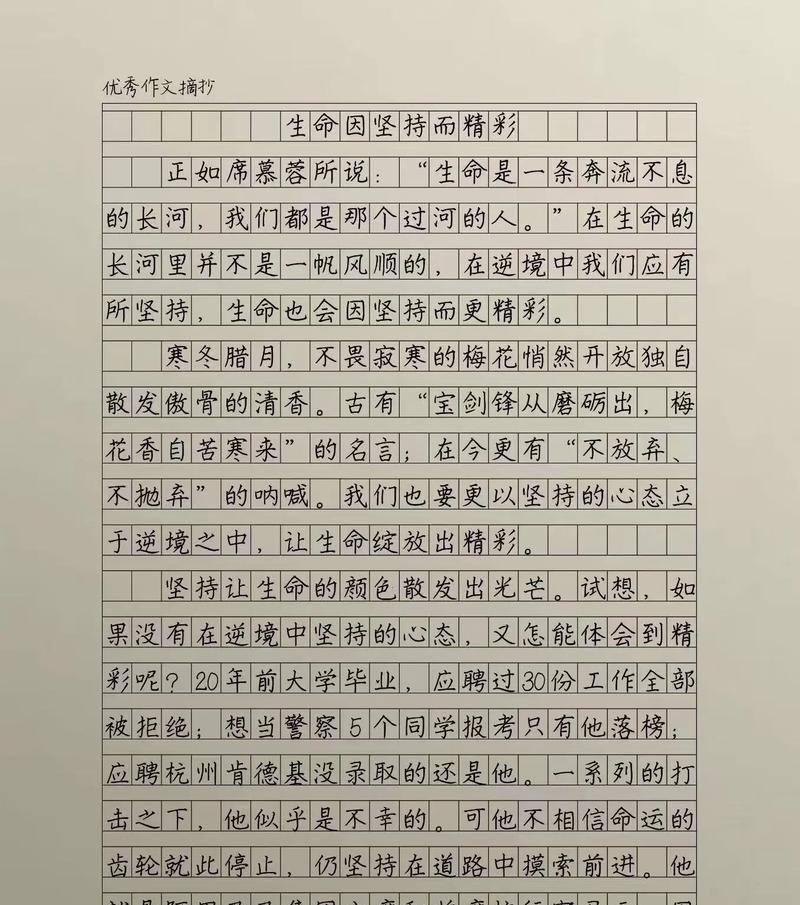 优秀作文摘抄
生命因坚持而精彩
正如席慕蓉所说：“生命是一条奔流不息
的长河，我们都是那个过河的人。”在生命的
长河里并不是一帆风顺的，在逆境中我们应有
所坚持，生命也会因坚持而更精彩。
寒冬腊月，不畏寂寒的梅花悄然开放独自
散发傲骨的清香。古有“宝剑锋从磨砺出，梅
花香自苦寒来”的名言；在今更有“不放弃、
不抛弃”的呐喊。我们也要更以坚持的心态立
于逆境之中，让生命绽放出精彩。
坚持让生命的颜色散发出光芒。试想，如
果没有在逆境中坚持的心态，又怎能体会到精
彩呢？20年前大学毕业，应聘过30份工作全部
被拒绝；想当警察5个同学报考只有他落榜；
应聘杭州肯德基没录取的还是他。一系列的打
击之下，他似乎是不幸的。可他不相信命运的
齿轮就此停止，仍坚持在道路中摸索前进。他